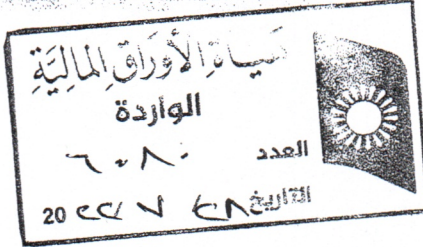 هيأة الأَوْرَاقِ المَالِيَّةِ
الواردة
العدد ٦٠٨٠
التاريخ ٢٨ ٧ 20٢٢